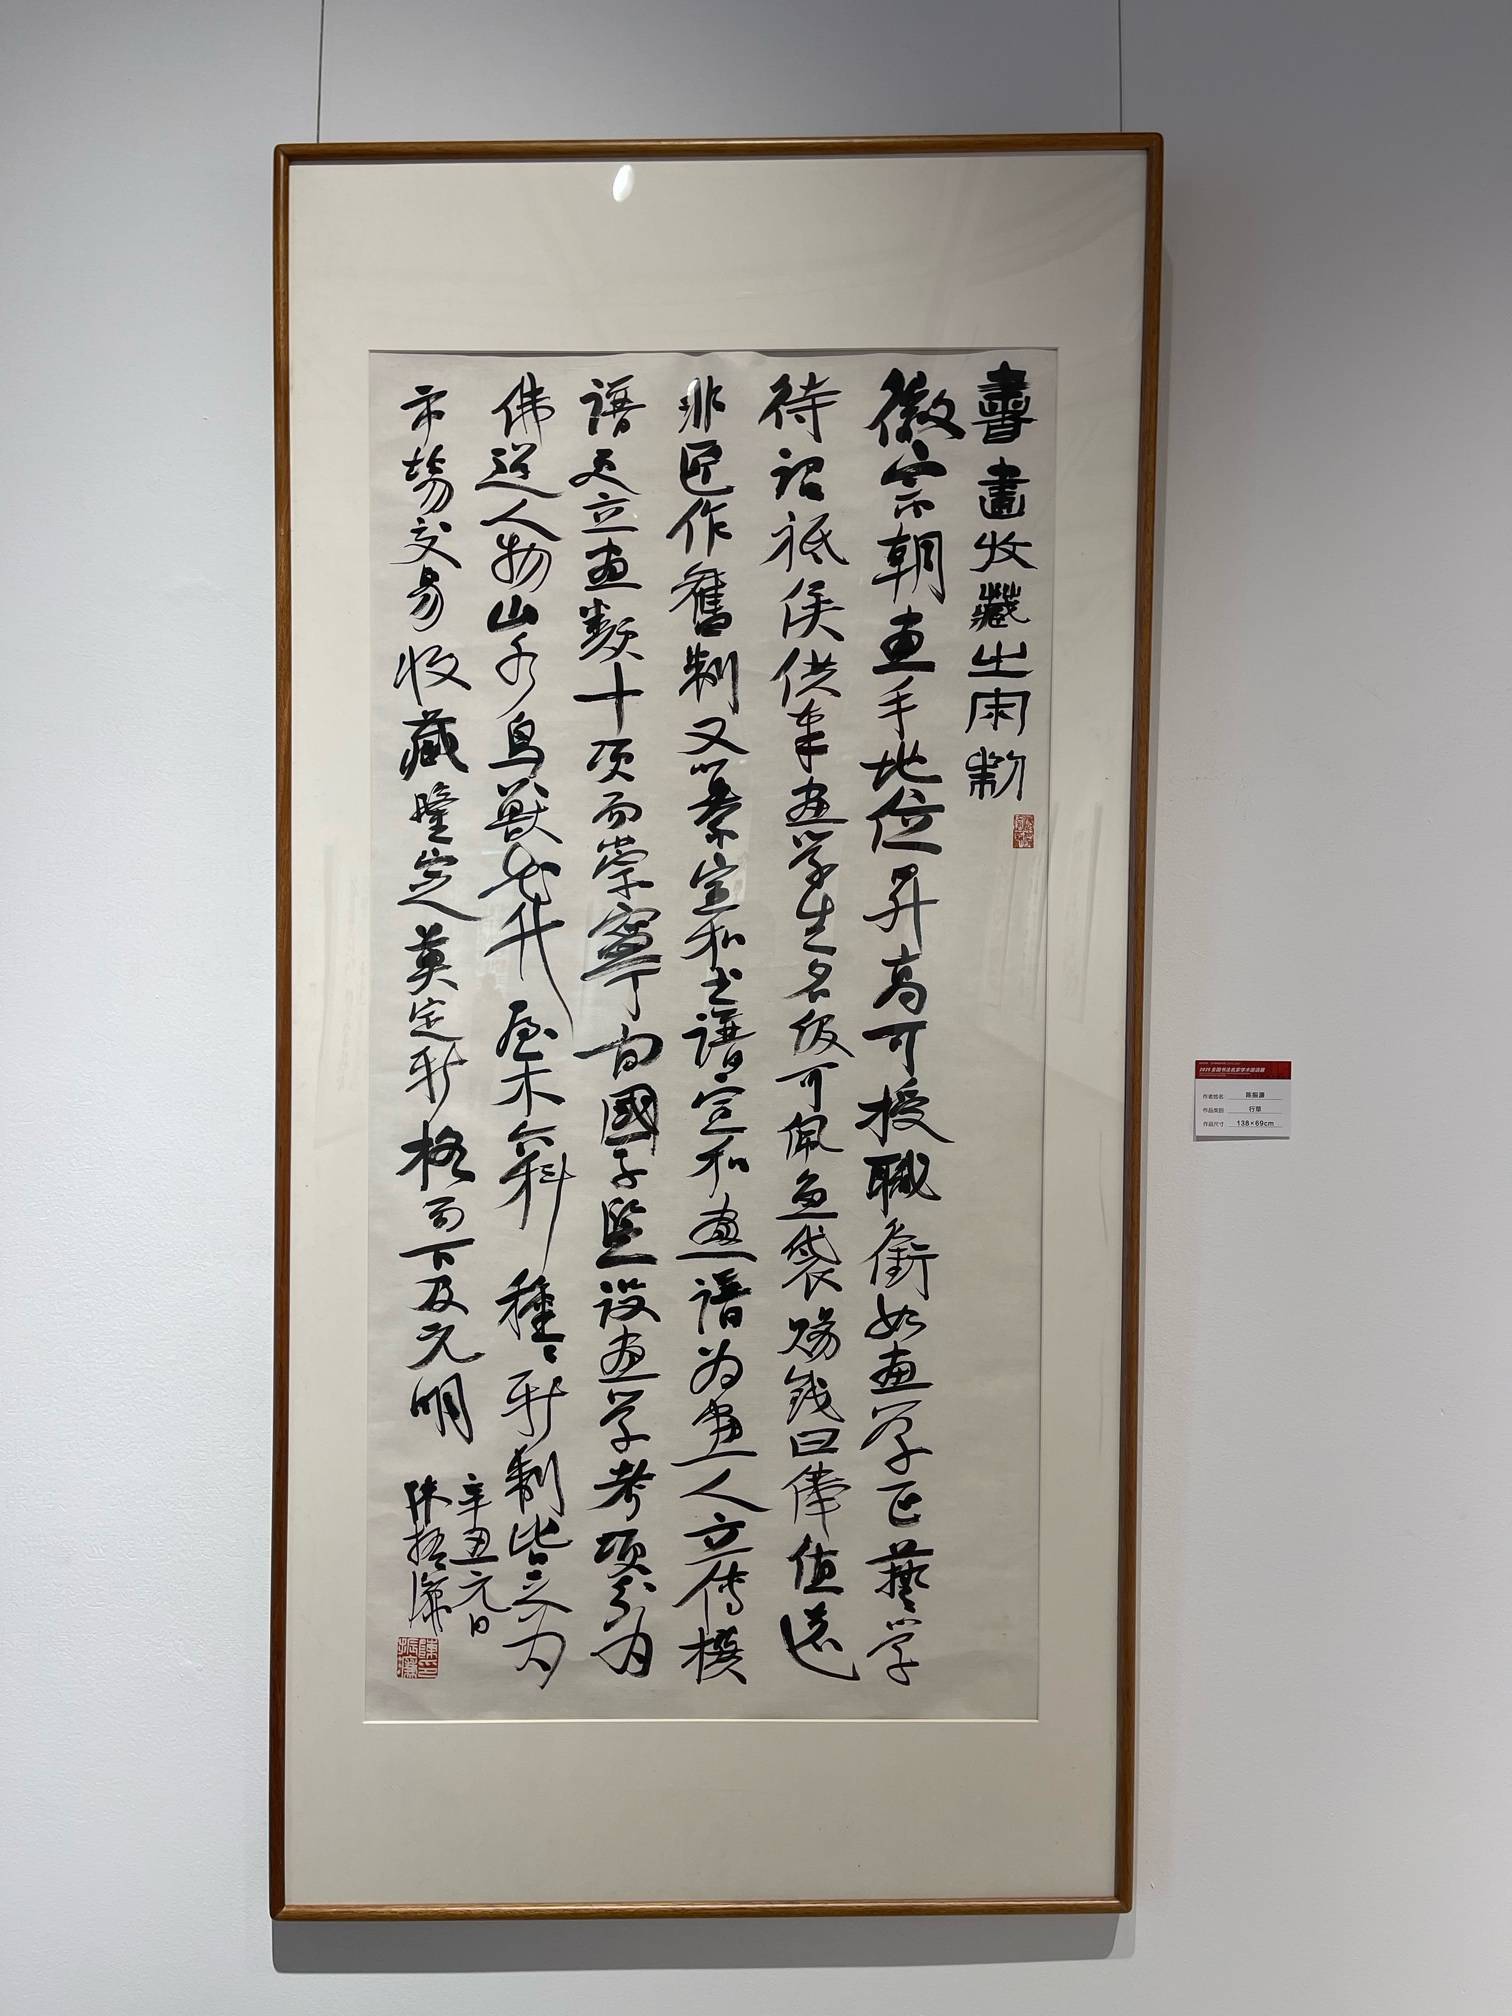 書畫收藏之宋制
徽宗朝畫手地位昇高可授職銜如畫學正藝學
待詔祗侯供奉畫學生名級可佩魚袋賜錢曰俸值遠
非匠作舊制又纂宣和书譜宣和畫譜为畫人立傳模
譜又立畫数十項而崇寧間國子監設畫学考項分为
佛道人物山水鸟獸花竹屋木六科種々新制皆立力
市場交易收藏鑒定奠定新格而下及元明
辛丑元日
陈振濂
2025全国书法名家学术邀请展
作者姓名 陈振濂
作品类别 行草
作品尺寸 138×69cm